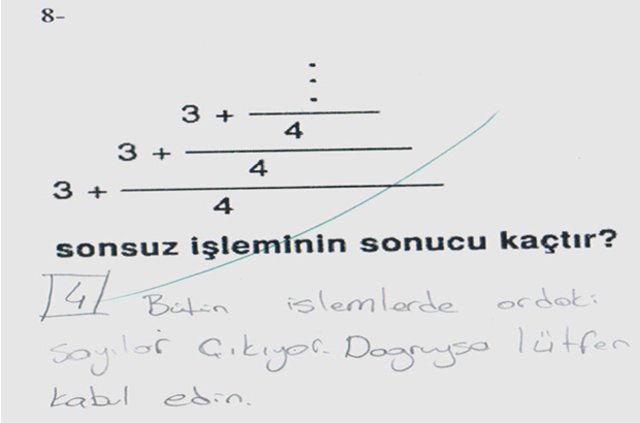 8-
⋮
3 + ———
4
3 + ———
4
3 + ———
4
sonsuz işleminin sonucu kaçtır?
4 Bütün işlemlerde ordaki
sayılar çıkıyor. Dogruysa lütfen
kabul edin.